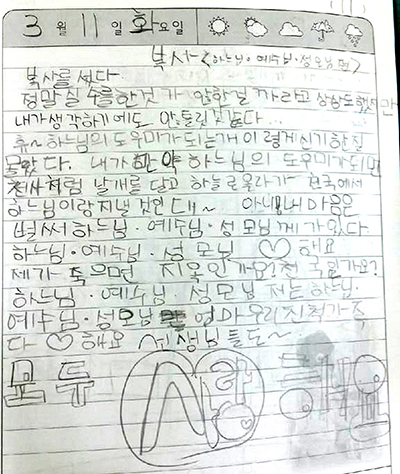 3 월 11 일 화 요일
복사 <하느님·예수님·성모님 편>
복사를 썼다.
정말 실수를 한것 가 안한걸까 라고 상상도 했지만
내가 생각하기에도 안틀린것 같다...
휴~ 하느님의 도우미가 되는게 이렇게 신기한 일
몰랐다. 내가 만약 하느님의 도우미가 되면
천사처럼 날개를 달고 하늘로 올라가 천국에서
하느님이랑 지낼 것인데~ 아니 내 마음은
벌써 하느님·예수님·성모님께 가 있다
하느님·예수님·성모님 ♡ 해요
제가 죽으면 지옥인가요? 천국인가요?
하느님·예수님·성모님 저는 하느님·
예수님·성모님 엄마 우리 친척 가족
다 ♡ 해요 선생님들도~
모두 사랑해요